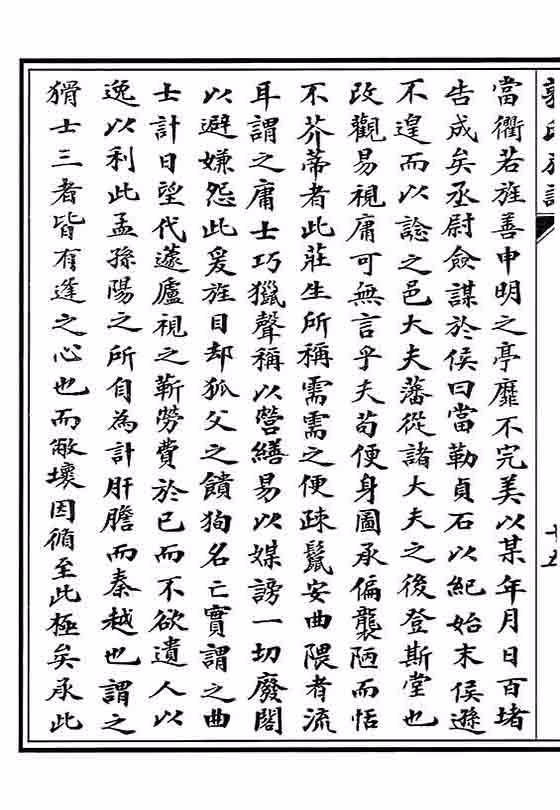 當衢若旌善申明之亭靡不完美以某年月日百堵
告成矣丞尉僉謀於侯曰當勒貞石以紀始末侯遜
不遑而以諗之邑大夫藩從諸大夫之後登斯堂也
改觀易視庸可無言乎夫苟便身圖承偏襲陋而恬
不芥蒂者此莊生所稱需需之便疎鬣安曲隈者流
耳謂之庸士巧獵聲稱以營繕易以媒謗一切廢閣
以避嫌怨此爰旌目却狐父之饋狥名亡實謂之曲
士計日望代蘧廬視之靳勞費於已而不欲遺人以
逸以利此孟孫陽之所自為計肝膽而秦越也謂之
猾士三者皆有逢之心也而敝壞因循至此極矣承此
十五